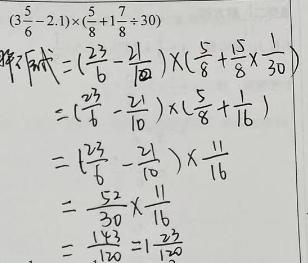 (3 5/6 - 2.1)×(5/8 + 1 7/8 ÷ 30)
解原式 = (23/6 - 21/10)×(5/8 + 15/8 × 1/30)
= (23/6 - 21/10)×(5/8 + 1/16)
= (23/6 - 21/10)× 11/16
= 52/30 × 11/16
= 143/120 = 1 23/120